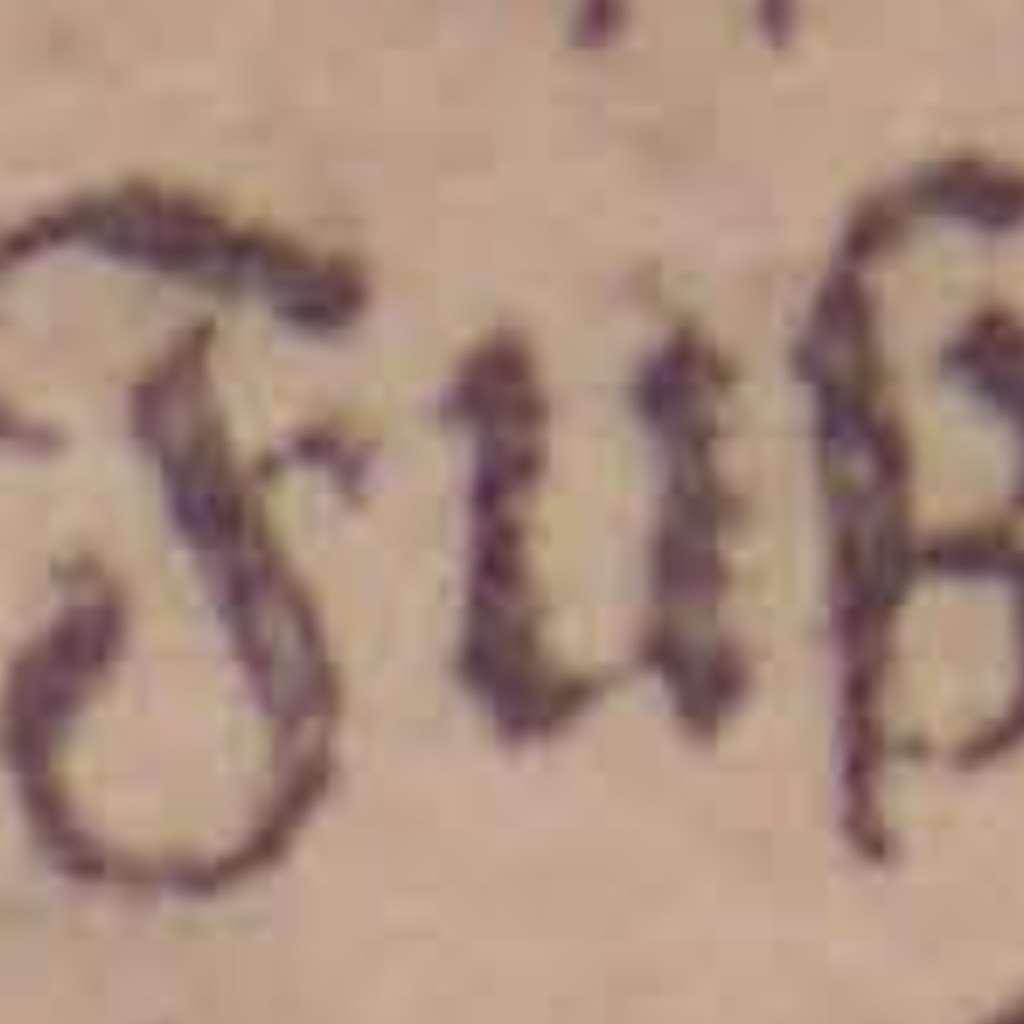 Fuß